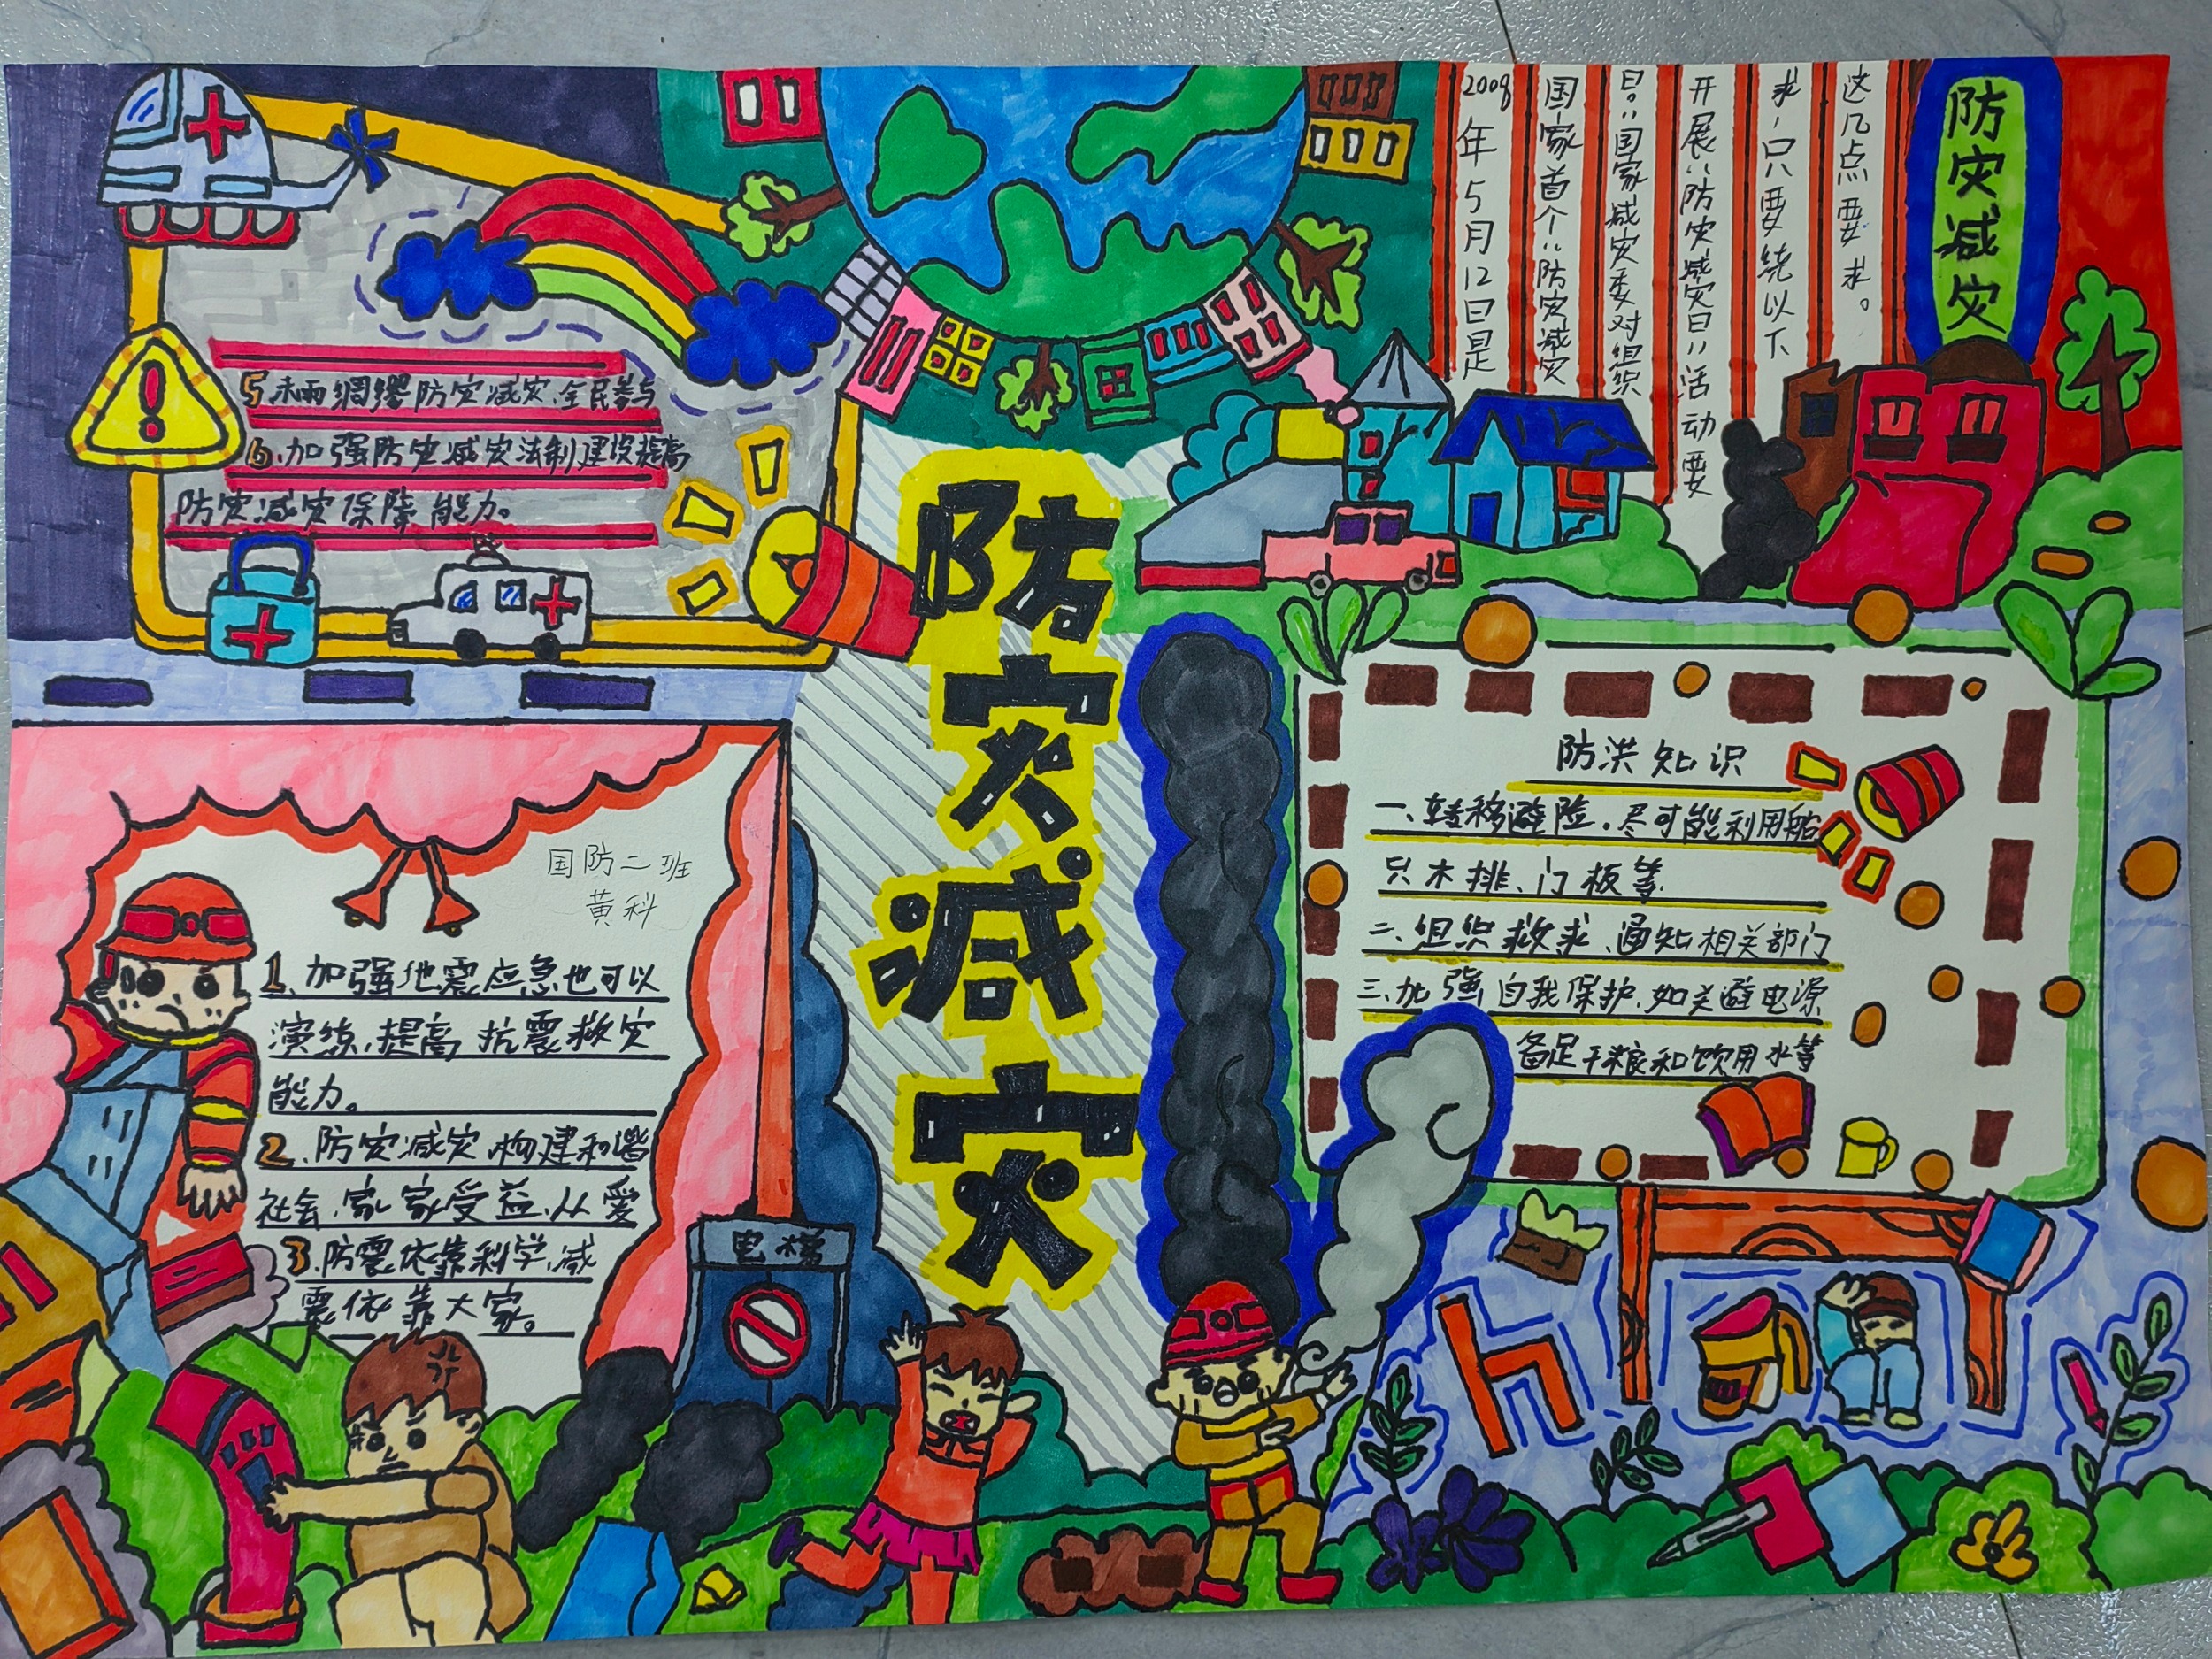 防灾减灾
2008年5月12日是
国家首个"防灾减灾
日。"国家减灾委对组织
开展"防灾减灾日"活动要
求,只要统以下
这几点要求。
5.未雨绸缪防灾减灾、全民参与
6.加强防灾减灾法制建设提高
防灾减灾保障能力。
防灾减灾
国防二班
黄科
1.加强地震应急也可以
演练,提高抗震救灾
能力。
2.防灾减灾构建和谐
社会,家家受益,从爱
3.防震依靠科学,减
震依靠大家。
电梯
防洪知识
一、转移避险。尽可能利用船
只木排、门板等
二、组织救求、通知相关部门
三、加强自我保护,如关避电源
备足干粮和饮用水等